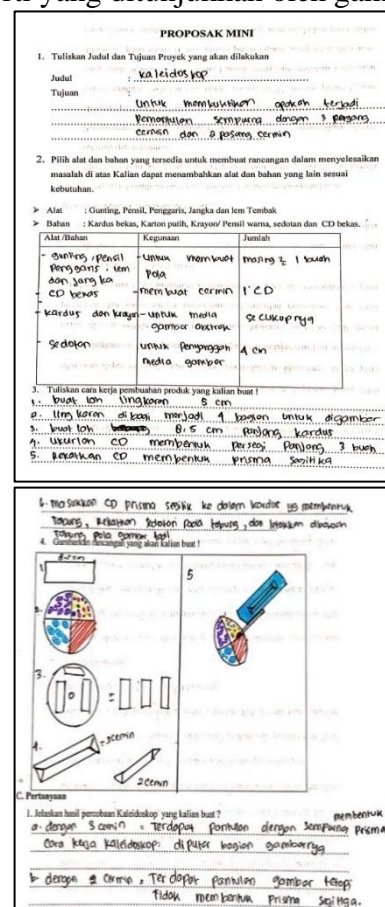 yang ditunjukkan oleh gam
PROPOSAK MINI
1. Tuliskan Judul dan Tujuan Proyek yang akan dilakukan
Judul : kaleidoskop
Tujuan :
Untuk membuktikan apakah terjadi
Pemantulan sempurna dengan 3 pasang
cermin dan 2 pasang cermin
2. Pilih alat dan bahan yang tersedia untuk membuat rancangan dalam menyelesaikan
masalah di atas Kalian dapat menambahkan alat dan bahan yang lain sesuai
kebutuhan.
➤ Alat : Gunting, Pensil, Penggaris, Jangka dan lem Tembak
➤ Bahan : Kardus bekas, Karton putih, Krayon/ Pensil warna, sedotan dan CD bekas.
Alat /Bahan Kegunaan Jumlah
- gunting, pensil - untuk membuat masing 2 1 buah
Penggaris, lem Pola
dan jangka
- CD bekas - membuat cermin 1 CD
- kardus dan krayon - untuk media secukupnya
gambar abstrak
- Sedotan untuk penyanggah 4 cm
media gambar
3. Tuliskan cara kerja pembuahan produk yang kalian buat !
1. buat lah lingkaran 5 cm
2. lingkaran di bagi menjadi 4 bagian untuk digambar
3. buat lah 8,5 cm panjang kardus
4. ukurlah CD membentuk persegi panjang 3 buah
5. Rekatkan CD membentuk prisma segitiga
6. masukkan CD prisma segitiga ke dalam kardus yg membentuk
tabung, Rekatkan sedotan pada tabung, dan letakkan dibawah
tabung pola gambar tadi
4. Gambarkan rancangan yang akan kalian buat !
8,5 cm
1.
2.
3.
4.
= 3 cermin
2 cermin
5
C. Pertanyaan
1. Jelaskan hasil percobaan Kaleidoskop yang kalian buat ?
a. dengan 3 cermin = Terdapat pantulan dengan sempurna membentuk prisma
cara kerja kaleidoskop: diputar bagian gambarnya
b. dengan 2 cermin, Terdapat pantulan gambar tetapi
tidak membentuk Prisma segitiga.